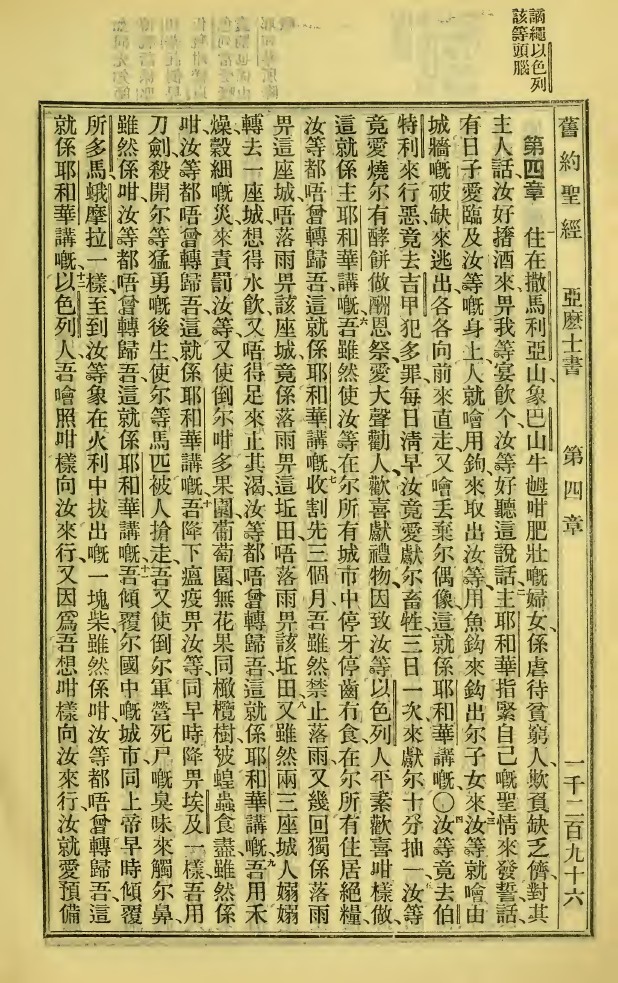 謫繩以色列
該等頭腦
舊約聖經 亞麽士書 第四章 一千二百九十六
第四章 住在撒馬利亞山象巴山牛乸咁肥壯嘅婦女係虐待貧窮人、欺負缺乏儕、對其
主人話、汝好捨酒來畀我等宴飲个、汝等好聽這說話、二主耶和華指緊自己嘅聖情來發誓話、
有日子愛臨及汝等嘅身上、人就噲用鉤來取出汝等、用魚鈎來鈎出尔子女來、三汝等就噲由
城牆嘅破缺來逃出、各各向前來直走、又噲丢棄尔偶像、這就係耶和華講嘅、〇四汝等竟去伯
特利來行惡、竟去吉甲犯多罪、每日淸早、汝竟愛獻尔畜牲、三日一次來獻尔十分抽一、五汝等
竟愛燒尔有酵餅做酬恩祭、愛大聲勸人歡喜獻禮物、因致汝等以色列人平素歡喜咁樣做、
這就係主耶和華講嘅、六吾雖然使汝等在尔所有城市中停牙停齒冇食、在尔所有住居絕糧、
汝等都唔曾轉歸吾、這就係耶和華講嘅、七收割先三個月、吾雖然禁止落雨、又幾回獨係落雨
畀這座城、唔落雨畀該座城、竟係落雨畀這坵田、唔落雨畀該坵田、八又雖然兩三座城人嫋嫋
轉去一座城想得水飲、又唔得足來止其渴、汝等都唔曾轉歸吾、這就係耶和華講嘅、九吾用禾
燥穀細嘅災來責罰汝等、又使倒尔咁多果園葡萄園無花果同橄欖樹被蝗蟲食盡、雖然係
咁、汝等都唔曾轉歸吾、這就係耶和華講嘅、十吾降下瘟疫畀汝等、同早時降畀埃及一樣、吾用
刀劍殺開尔等猛勇嘅後生、使尔等馬匹被人搶走、吾又使倒尔軍營死尸嘅臭味來觸尔鼻、
雖然係咁、汝等都唔曾轉歸吾、這就係耶和華講嘅、十一吾傾覆尔國中嘅城市、同上帝早時傾覆
所多馬蛾摩拉一樣、至到汝等象在火利中拔出嘅一塊柴、雖然係咁、汝等都唔曾轉歸吾、這
就係耶和華講嘅、十二以色列人、吾噲照咁樣向汝來行、又因爲吾想咁樣向汝來行、汝就愛預備